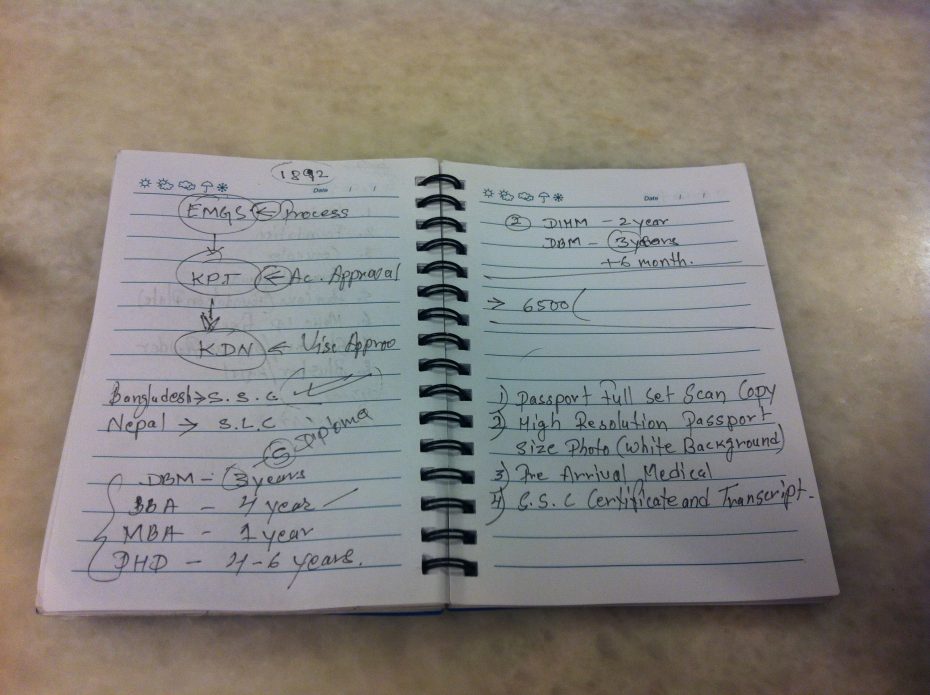 1892
Date / /
EMGS ← Process
KPJ ← Ac. Appraval
KDN ← Vise Approo
Bangladesh → S.S.C
Nepal → S.L.C
Diploma
DBM - 3 years
BBA - 4 year
MBA - 1 year
PHD - 4-6 years.
Date / /
DIHM - 2 year
DBM - 3 years
+6 month.
→ 6500
1) Passport Full Set Scan Copy
2) High Resolution Passport
Size Photo (White Background)
3) Pre Arrival Medical
4) S.S.C Certificate and Transcript.